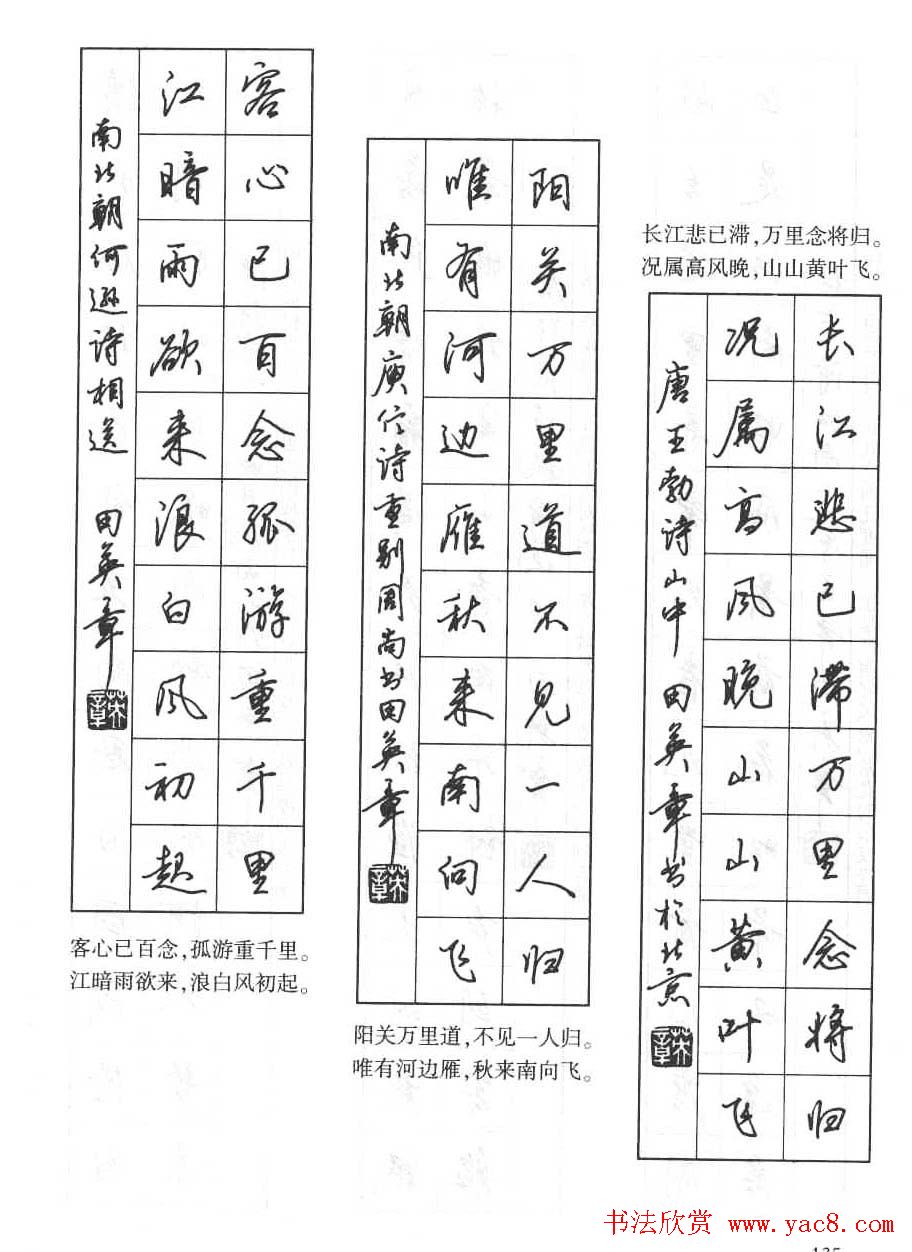 客心已百念孤游重千里
江暗雨欲来浪白风初起
南北朝何逊诗相送 田英章
英章
客心已百念,孤游重千里。
江暗雨欲来,浪白风初起。
阳关万里道不见一人归
唯有河边雁秋来南向飞
南北朝庾信诗重别周尚书田英章
英章
阳关万里道,不见一人归。
唯有河边雁,秋来南向飞。
长江悲已滞,万里念将归。
况属高风晚,山山黄叶飞。
长江悲已滞万里念将归
况属高风晚山山黄叶飞
唐王勃诗山中 田英章书於北京
英章
书法欣赏 www.yac8.com